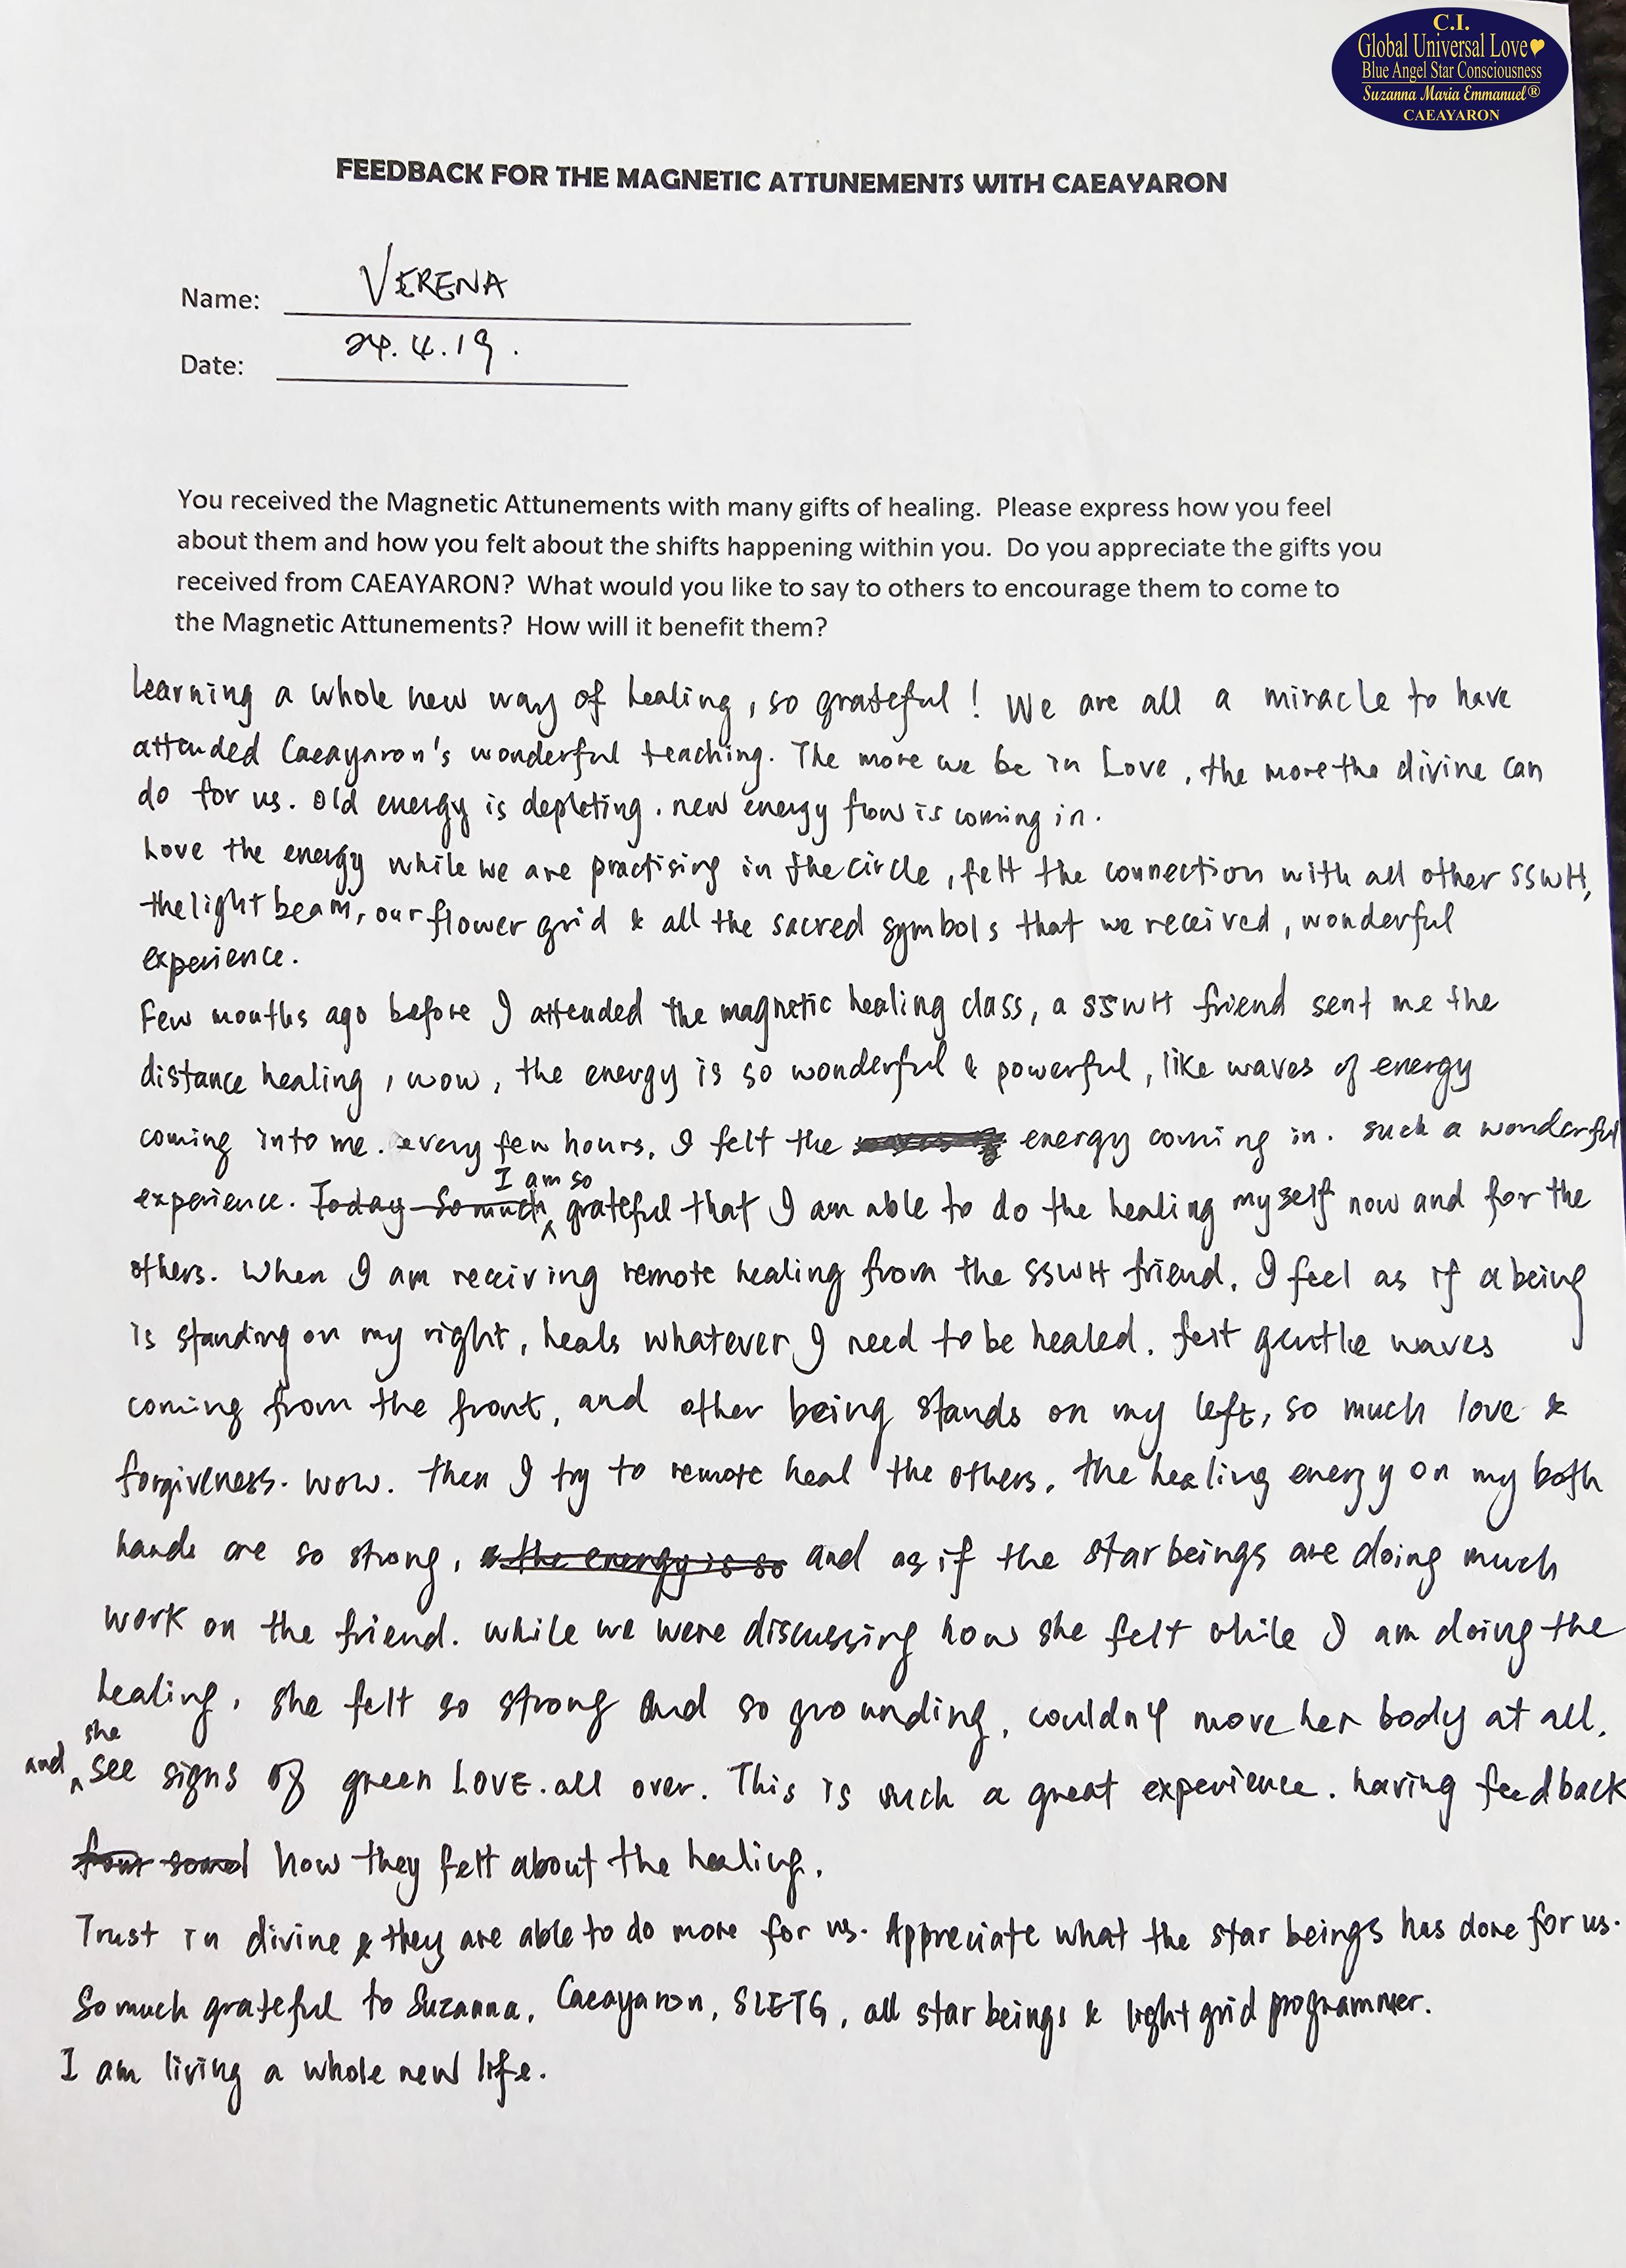 C.I.
Global Universal Love
Blue Angel Star Consciousness
Suzanna Maria Emmanuel®
CAEAYARON
FEEDBACK FOR THE MAGNETIC ATTUNEMENTS WITH CAEAYARON
Name: VERENA
Date: 24.4.19.
You received the Magnetic Attunements with many gifts of healing. Please express how you feel
about them and how you felt about the shifts happening within you. Do you appreciate the gifts you
received from CAEAYARON? What would you like to say to others to encourage them to come to
the Magnetic Attunements? How will it benefit them?
Learning a whole new way of healing, so grateful! We are all a miracle to have
attended Caeayaron's wonderful teaching. The more we be in Love, the more the divine can
do for us. Old energy is depleting. new energy flow is coming in.
Love the energy while we are practising in the circle, felt the connection with all other SSWH,
the light beam, our flower grid & all the sacred symbols that we received, wonderful
experience.
Few months ago before I attended the magnetic healing class, a SSWH friend sent me the
distance healing, wow, the energy is so wonderful & powerful, like waves of energy
coming into me. every few hours, I felt the energy coming in. such a wonderful
experience. Today So much I am so grateful that I am able to do the healing myself now and for the
others. When I am receiving remote healing from the SSWH friend, I feel as if a being
is standing on my right, heals whatever I need to be healed. felt gentle waves
coming from the front, and other being stands on my left, so much love &
forgiveness. wow. Then I try to remote heal the others, the healing energy on my both
hands are so strong, the energy is so and as if the star beings are doing much
work on the friend. while we were discussing how she felt while I am doing the
healing, she felt so strong and so grounding, couldn't move her body at all,
and she see signs of green LOVE. all over. This is such a great experience. having feedback
how they felt about the healing.
Trust in divine & they are able to do more for us. Appreciate what the star beings has done for us.
So much grateful to Suzanna, Caeayaron, SLETG, all star beings & light grid programmer.
I am living a whole new life.